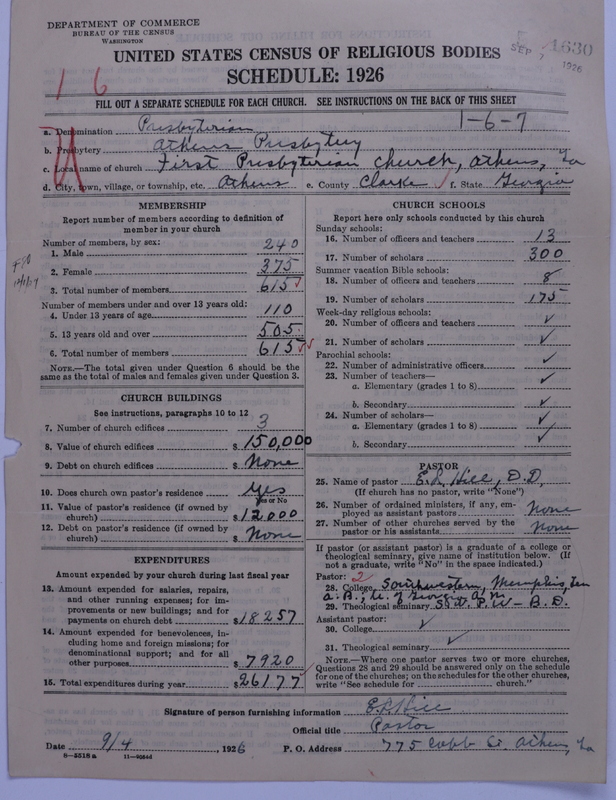 DEPARTMENT OF COMMERCE
BUREAU OF THE CENSUS
WASHINGTON
UNITED STATES CENSUS OF RELIGIOUS BODIES
SCHEDULE: 1926
SEP 7 1926
1630
1 6
FILL OUT A SEPARATE SCHEDULE FOR EACH CHURCH. SEE INSTRUCTIONS ON THE BACK OF THIS SHEET
1-6-7
a. Denomination Presbyterian
b. Presbytery Athens Presbytery
c. Local name of church First Presbyterian Church, Athens, Ga
d. City, town, village, or township, etc. Athens e. County Clarke f. State Georgia
MEMBERSHIP
Report number of members according to definition of
member in your church
Number of members, by sex:
1. Male 240
2. Female 375
3. Total number of members 615
Number of members under and over 13 years old:
4. Under 13 years of age 110
5. 13 years old and over 505
6. Total number of members 615
NOTE.—The total given under Question 6 should be the
same as the total of males and females given under Question 3.
CHURCH BUILDINGS
See instructions, paragraphs 10 to 12
7. Number of church edifices 3
8. Value of church edifices $150,000
9. Debt on church edifices $ None
10. Does church own pastor's residence Yes
Yes or No
11. Value of pastor's residence (if owned by
church) $12000
12. Debt on pastor's residence (if owned by
church) $ None
EXPENDITURES
Amount expended by your church during last fiscal year
13. Amount expended for salaries, repairs,
and other running expenses; for im-
provements or new buildings; and for
payments on church debt $18257
14. Amount expended for benevolences, in-
cluding home and foreign missions; for
denominational support; and for all
other purposes $7920
15. Total expenditures during year $26177
CHURCH SCHOOLS
Report here only schools conducted by this church
Sunday schools:
16. Number of officers and teachers 13
17. Number of scholars 300
Summer vacation Bible schools:
18. Number of officers and teachers 8
19. Number of scholars 175
Week-day religious schools:
20. Number of officers and teachers ✓
21. Number of scholars ✓
Parochial schools:
22. Number of administrative officers ✓
23. Number of teachers—
a. Elementary (grades 1 to 8) ✓
b. Secondary ✓
24. Number of scholars—
a. Elementary (grades 1 to 8) ✓
b. Secondary ✓
PASTOR
25. Name of pastor E. L. Hill, D.D.
(If church has no pastor, write "None")
26. Number of ordained ministers, if any, em-
ployed as assistant pastors None
27. Number of other churches served by the
pastor or his assistants None
If pastor (or assistant pastor) is a graduate of a college or
theological seminary, give name of institution below. (If
not a graduate, write "No" in the space indicated.)
Pastor: 2
28. College Southwestern, Memphis, Ten
A.B.; U. of Georgia A.M.
29. Theological seminary S. P. U - B.D.
Assistant pastor:
30. College ✓
31. Theological seminary ✓
NOTE.—Where one pastor serves two or more churches,
Questions 28 and 29 should be answered only on the schedule
for one of the churches; on the schedules for the other churches,
write "See schedule for church."
Signature of person furnishing information E. L. Hill
Official title Pastor
Date 9/4, 1926 P. O. Address 775 Cobb St Athens, Ga
8—5518 a